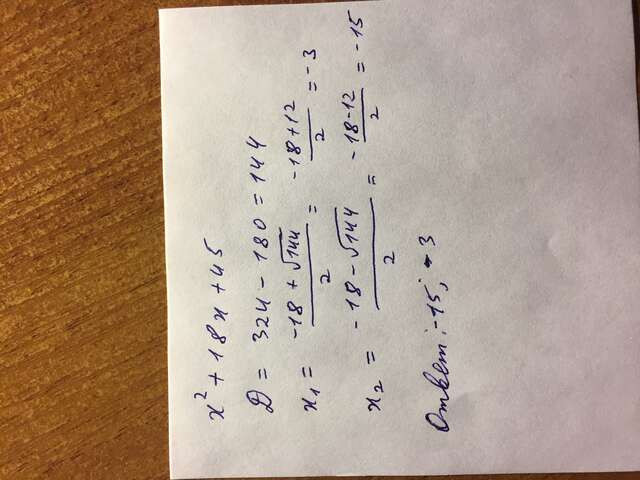 x² + 18x + 45
D = 324 - 180 = 144
x₁ = (-18 + √144)/2 = (-18+12)/2 = -3
x₂ = (-18 - √144)/2 = (-18-12)/2 = -15
Ответ: -15; -3